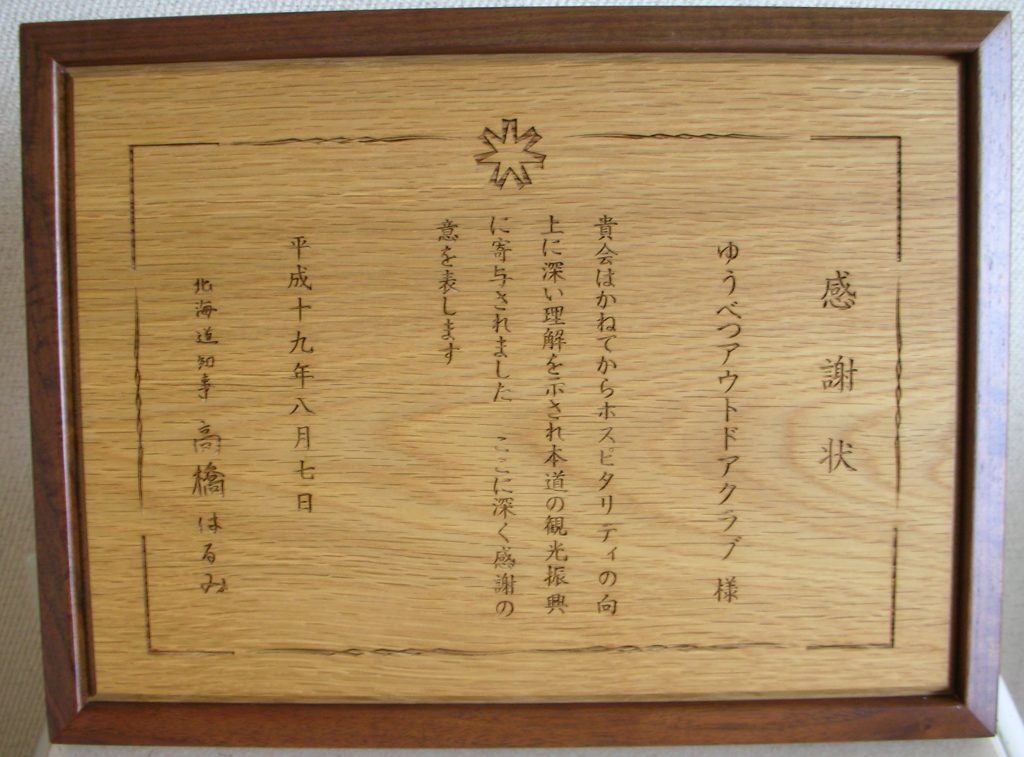 感謝状
ゆうべつアウトドアクラブ 様
貴会はかねてからホスピタリティの向
上に深い理解を示され本道の観光振興
に寄与されました ここに深く感謝の
意を表します
平成十九年八月七日
北海道知事 高橋はるみ